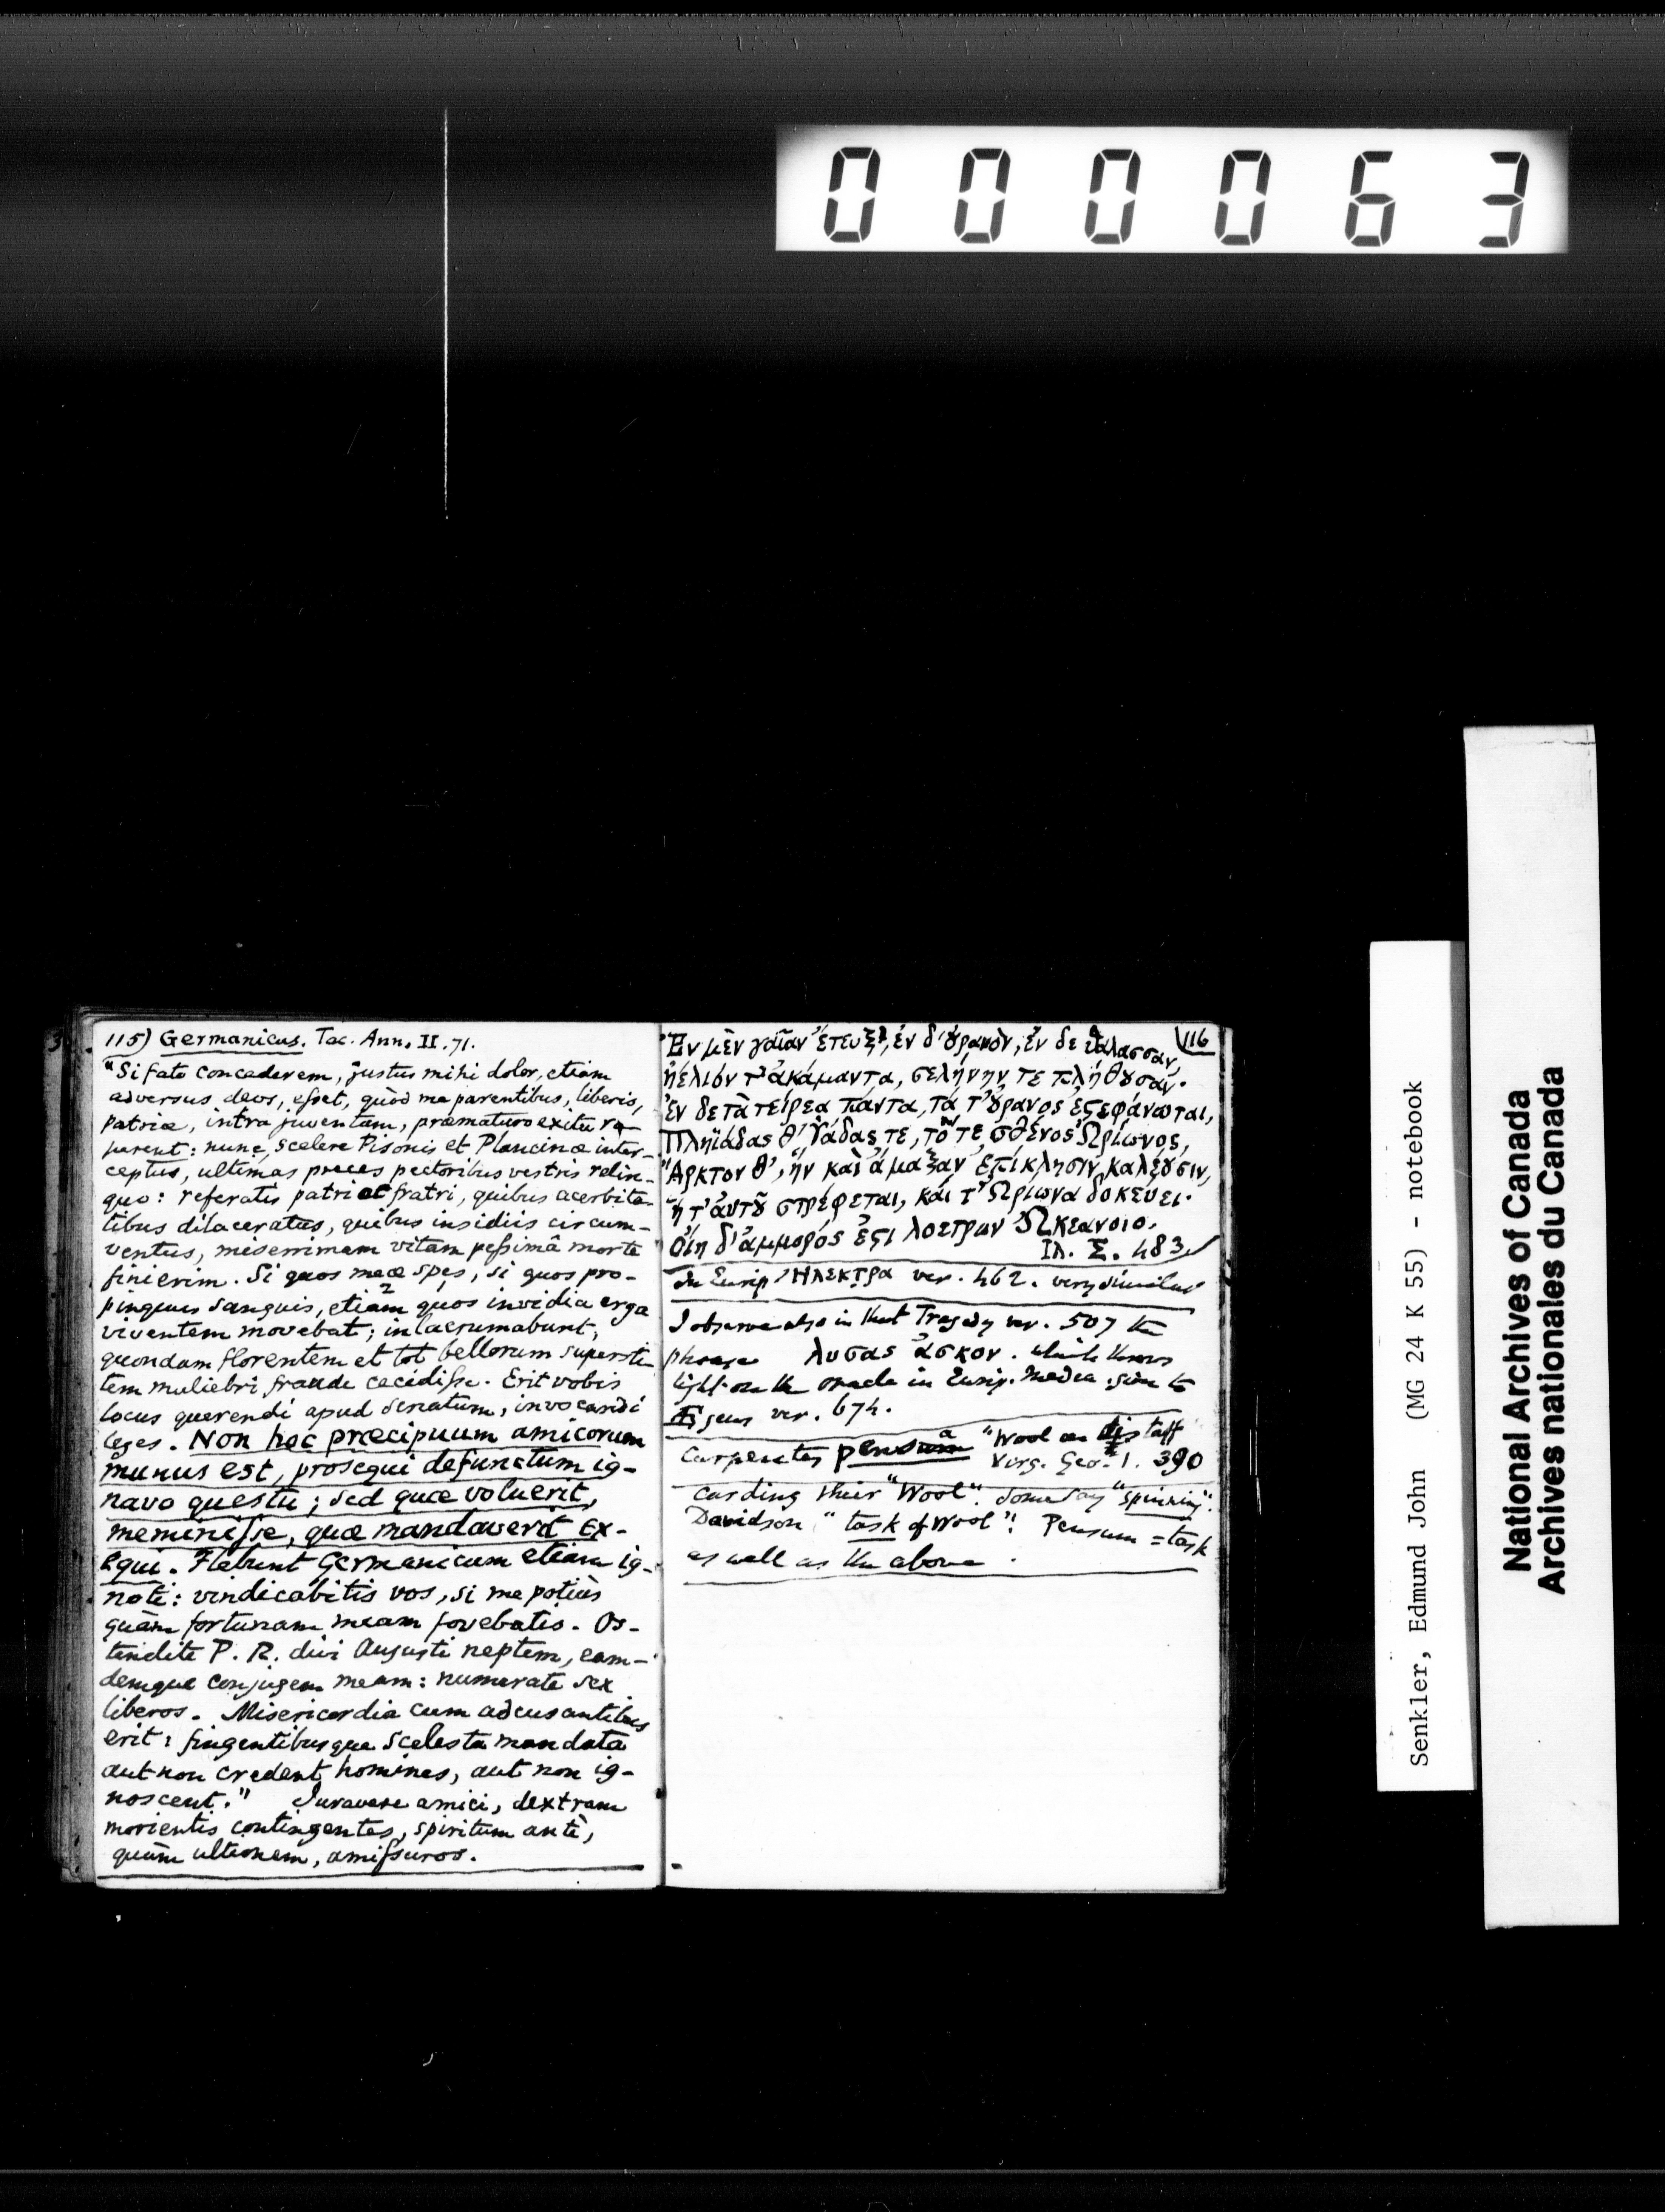 000063
115) Germanicus. Tac. Ann. II. 71.
"Si fato concederem, justus mihi dolor, etiam
adversus deos, esset, quòd me parentibus, liberis,
patriæ, intra juventam, præmaturo exitu ra-
perent: nunc, scelere Pisonis et Plancinæ inter-
ceptus, ultimas preces pectoribus vestris relin-
quo: referatis patri et fratri, quibus acerbita-
tibus dilaceratus, quibus insidiis circum-
ventus, miserrimam vitam pessimâ morte
finierim. Si quos meæ spes, si quos pro-
pinquus sanguis, etiam quos invidia erga
viventem movebat; inlacrumabunt,
quondam florentem et tot bellorum supersti-
tem muliebri fraude cecidisse. Erit vobis
locus querendi apud senatum, invocandi
leges. Non hoc præcipuum amicorum
munus est, prosequi defunctum ig-
navo questu; sed quæ voluerit,
meminisse, quæ mandaverit ex-
equi. Flebunt Germanicum etiam ig-
noti: vindicabitis vos, si me potiùs
quàm fortunam meam fovebatis. Os-
tendite P. R. divi Augusti neptem, eam-
demque conjugem meam: numerate sex
liberos. Misericordia cum adcusantibus
erit: fingentibusque scelesta mandata
aut non credent homines, aut non ig-
noscent." Juravere amici, dextram
morientis contingentes, spiritum antè,
quàm ultionem, amissuros.
116
Ἐν μὲν γαῖαν ἔτευξ', ἐν δ' ȣ̓ρανὸν, ἐν δε θάλασσαν,
ἠέλιόν τ' ἀκάμαντα, σελήνην τε πλήθȣσαν.
Ἐν δε τὰ τείρεα πάντα, τά τ' ȣ̓ρανος ἐϛεφάνωται,
Πληϊάδας θ' Ὑάδας τε, τό τε σθένος Ὠρίωνος,
Ἄρκτον θ', ἣν καὶ ἅμαξαν ἐπίκλησιν καλέȣσιν,
ἥ τ' ἀυτȣ͂ στρέφεται, και τ' Ὠρίωνα δοκεύει.
Οἴη δ' ἄμμορός ἐϛι λοετρων Ὠκεανοιο.
Ιλ. Σ. 483
In Eurip. Ηλεκτρα ver. 462. very similar
I observe also in that Tragedy ver. 507 the
phrase λυσας ἀσκον. which throws
light on the oracle in Eurip. Medea given to
Ægeus ver. 674.
Carpentes pensa "Wool on distaff
Virg. Geo. 1. 390
carding their "Wool". Some say "spinning".
Davidson "task of wool"! Pensum = task
as well as the above.
Senkler, Edmund John (MG 24 K 55) - notebook
National Archives of Canada
Archives nationales du Canada